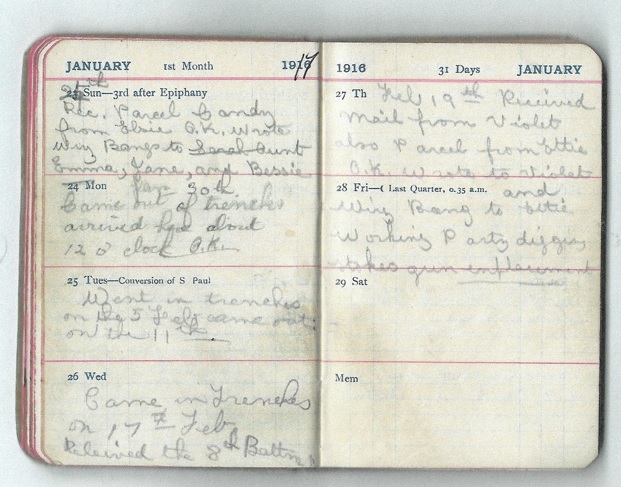 JANUARY 1st Month 1916 17
24th
23 Sun—3rd after Epiphany
Rec. Parcel Candy
from Elsie O.K. Wrote
Wiz Bangs to Sarah Aunt
Emma, Jane, and Bessie
24 Mon Jan 30th
Came out of trenches
arrived about
12 o'clock O.K.
25 Tues—Conversion of S Paul
Went in trenches
on the 5 Feb came out
on the 11th
26 Wed
Came in Trenches
on 17th Feb
Relieved the 8th Battn
1916 31 Days JANUARY
27 Th Feb 19th Received
Mail from Violet
also Parcel from Ettie
O.K. Wrote to Violet
28 Fri—☾ Last Quarter, 0.35 a.m. and
Wiz Bang to Ettie
Working Party digging
gun emplacement
29 Sat
Mem